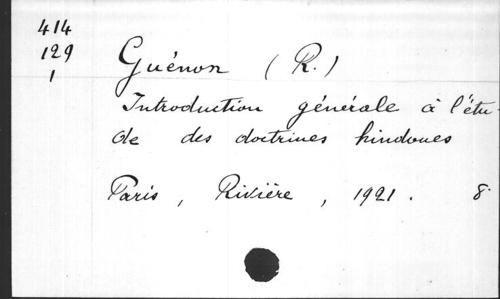 414
129
1
Guénon (R.)
Introduction générale à l'étu-
de des doctrines hindoues
Paris, Rivière, 1921. 8°